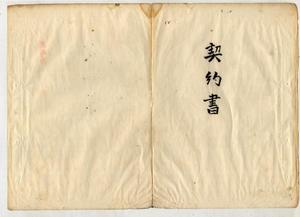 契約書